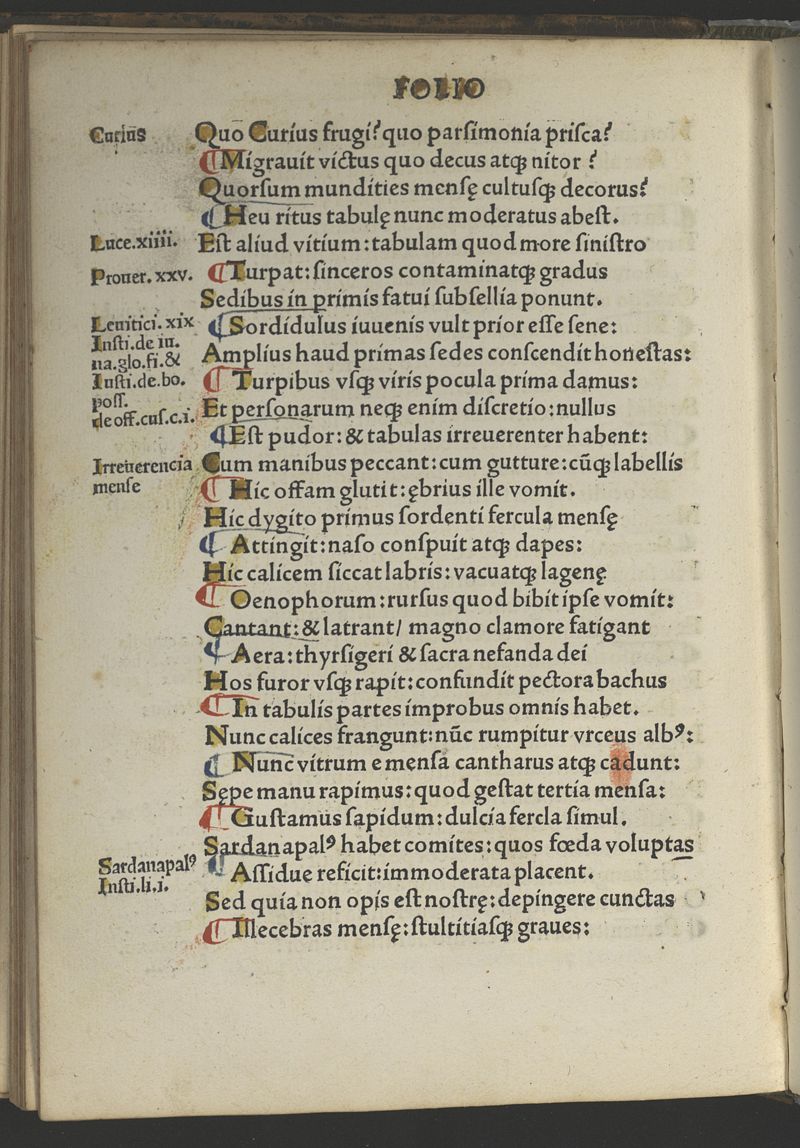 FOLIO
Curiũs
Quo Curius frugi? quo parſimonia priſca?
¶ Migrauit victus quo decus atqꝫ nitor?
Quorſum mundities menſę cultuſqꝫ decorus?
¶ Heu ritus tabulę nunc moderatus abeſt.
Luce.xiiii.
Eſt aliud vitium: tabulam quod more ſiniſtro
Prouer.xxv.
¶ Turpat: ſinceros contaminatqꝫ gradus
Sedibus in primis fatui ſubſellia ponunt.
Leuitici.xix
¶ Sordidulus iuuenis vult prior eſſe ſene:
Inſti.de iu.
na.glo.fi.&
Amplius haud primas ſedes conſcendit honeſtas:
Inſti.de.bo.
¶ Turpibus vſqꝫ viris pocula prima damus:
poſſ.
de off.cuſ.c.i.
Et perſonarum neqꝫ enim diſcretio: nullus
¶ Eſt pudor: & tabulas irreuerenter habent:
Irreuerencia
menſe
Cum manibus peccant: cum gutture: cũqꝫ labellis
¶ Hic offam glutit: ębrius ille vomit.
Hic dygito primus ſordenti fercula menſę
¶ Attingit: naſo conſpuit atqꝫ dapes:
Hic calicem ſiccat labris: vacuatqꝫ lagenę
¶ Oenophorum: rurſus quod bibit ipſe vomit:
Cantant: & latrant/ magno clamore fatigant
¶ Aera: thyrſigeri & ſacra nefanda dei
Hos furor vſqꝫ rapit: confundit pectora bachus
¶ In tabulis partes improbus omnis habet.
Nunc calices frangunt: nũc rumpitur vrceus albꝰ:
¶ Nunc vitrum e menſa cantharus atqꝫ cadunt:
Sępe manu rapimus: quod geſtat tertia menſa:
¶ Guſtamus ſapidum: dulcia fercla ſimul.
Sardanapalꝰ habet comites: quos fœda voluptas
Sardanapalꝰ
Inſti.li.i.
¶ Aſſidue reficit: immoderata placent.
Sed quia non opis eſt noſtrę: depingere cunctas
¶ Illecebras menſę: ſtultitiaſqꝫ graues: